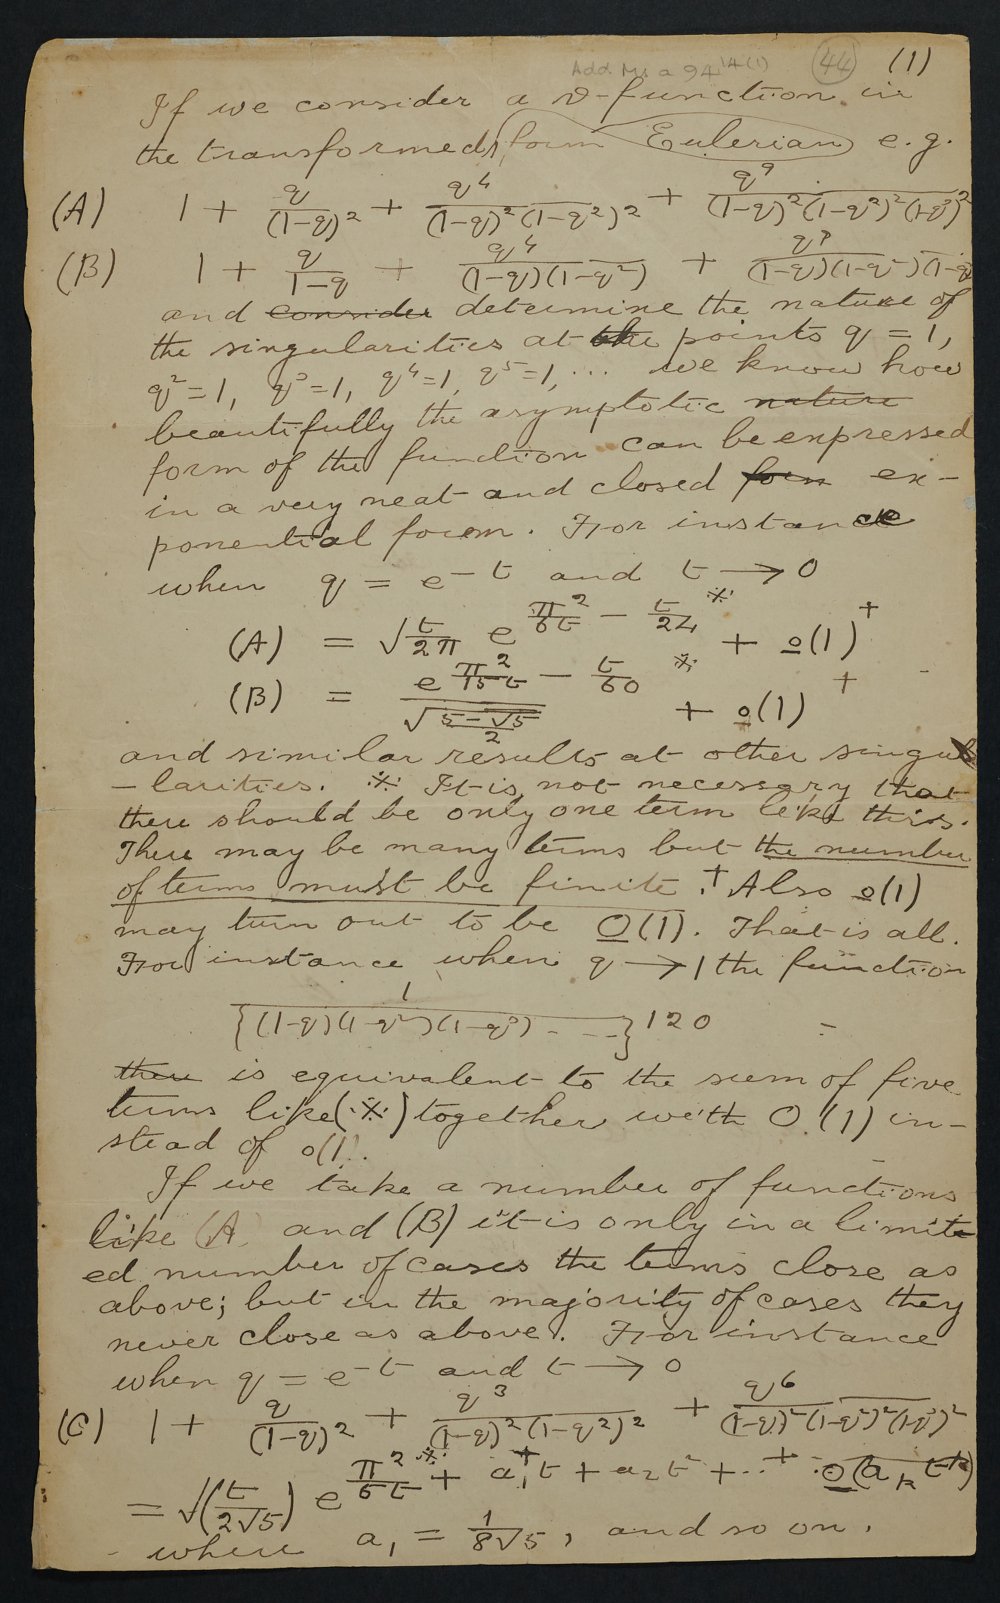 Add. Ms a 94 14(1) (44) (1)
If we consider a ϑ-function in
the transformed form Eulerian e.g.
(A) 1 + q/(1-q)² + q⁴/(1-q)²(1-q²)² + q⁹/(1-q)²(1-q²)²(1-q³)²
(B) 1 + q/1-q + q⁴/(1-q)(1-q²) + q⁹/(1-q)(1-q²)(1-q
and consider determine the nature of
the singularities at the points q = 1,
q² = 1, q³ = 1, q⁴ = 1, q⁵ = 1, ... we know how
beautifully the asymptotic nature
form of the function can be expressed
in a very neat and closed form ex-
ponential form. For instance
when q = e^{-t} and t → 0
(A) = √(t/2π) e^{π²/6t - t/24} ※ + o(1)⁺
(B) = e^{π²/15t - t/60} ※ / √(5-√5/2) + o(1) +
and similar results at other singu
-larities. ※ It is not necessary that
there should be only one term like this.
There may be many terms but the number
of terms must be finite. + Also o(1)
may turn out to be O(1). That is all.
For instance when q → 1 the function
1/{(1-q)(1-q²)(1-q³) - - -}120
there is equivalent to the sum of five
terms like (※) together with O(1) in-
stead of o(1).
If we take a number of functions
like (A) and (B) it is only in a limit
ed number of cases the terms close as
above; but in the majority of cases they
never close as above. For instance
when q = e^{-t} and t → 0
(C) 1 + q/(1-q)² + q³/(1-q)²(1-q²)² + q⁶/(1-q)²(1-q²)²(1-q³)²
= √(t/2√5) e^{π²/5t ※ + a₁t + a₂t² + ... + O(a_k t^k)}
where a₁ = 1/8√5, and so on.